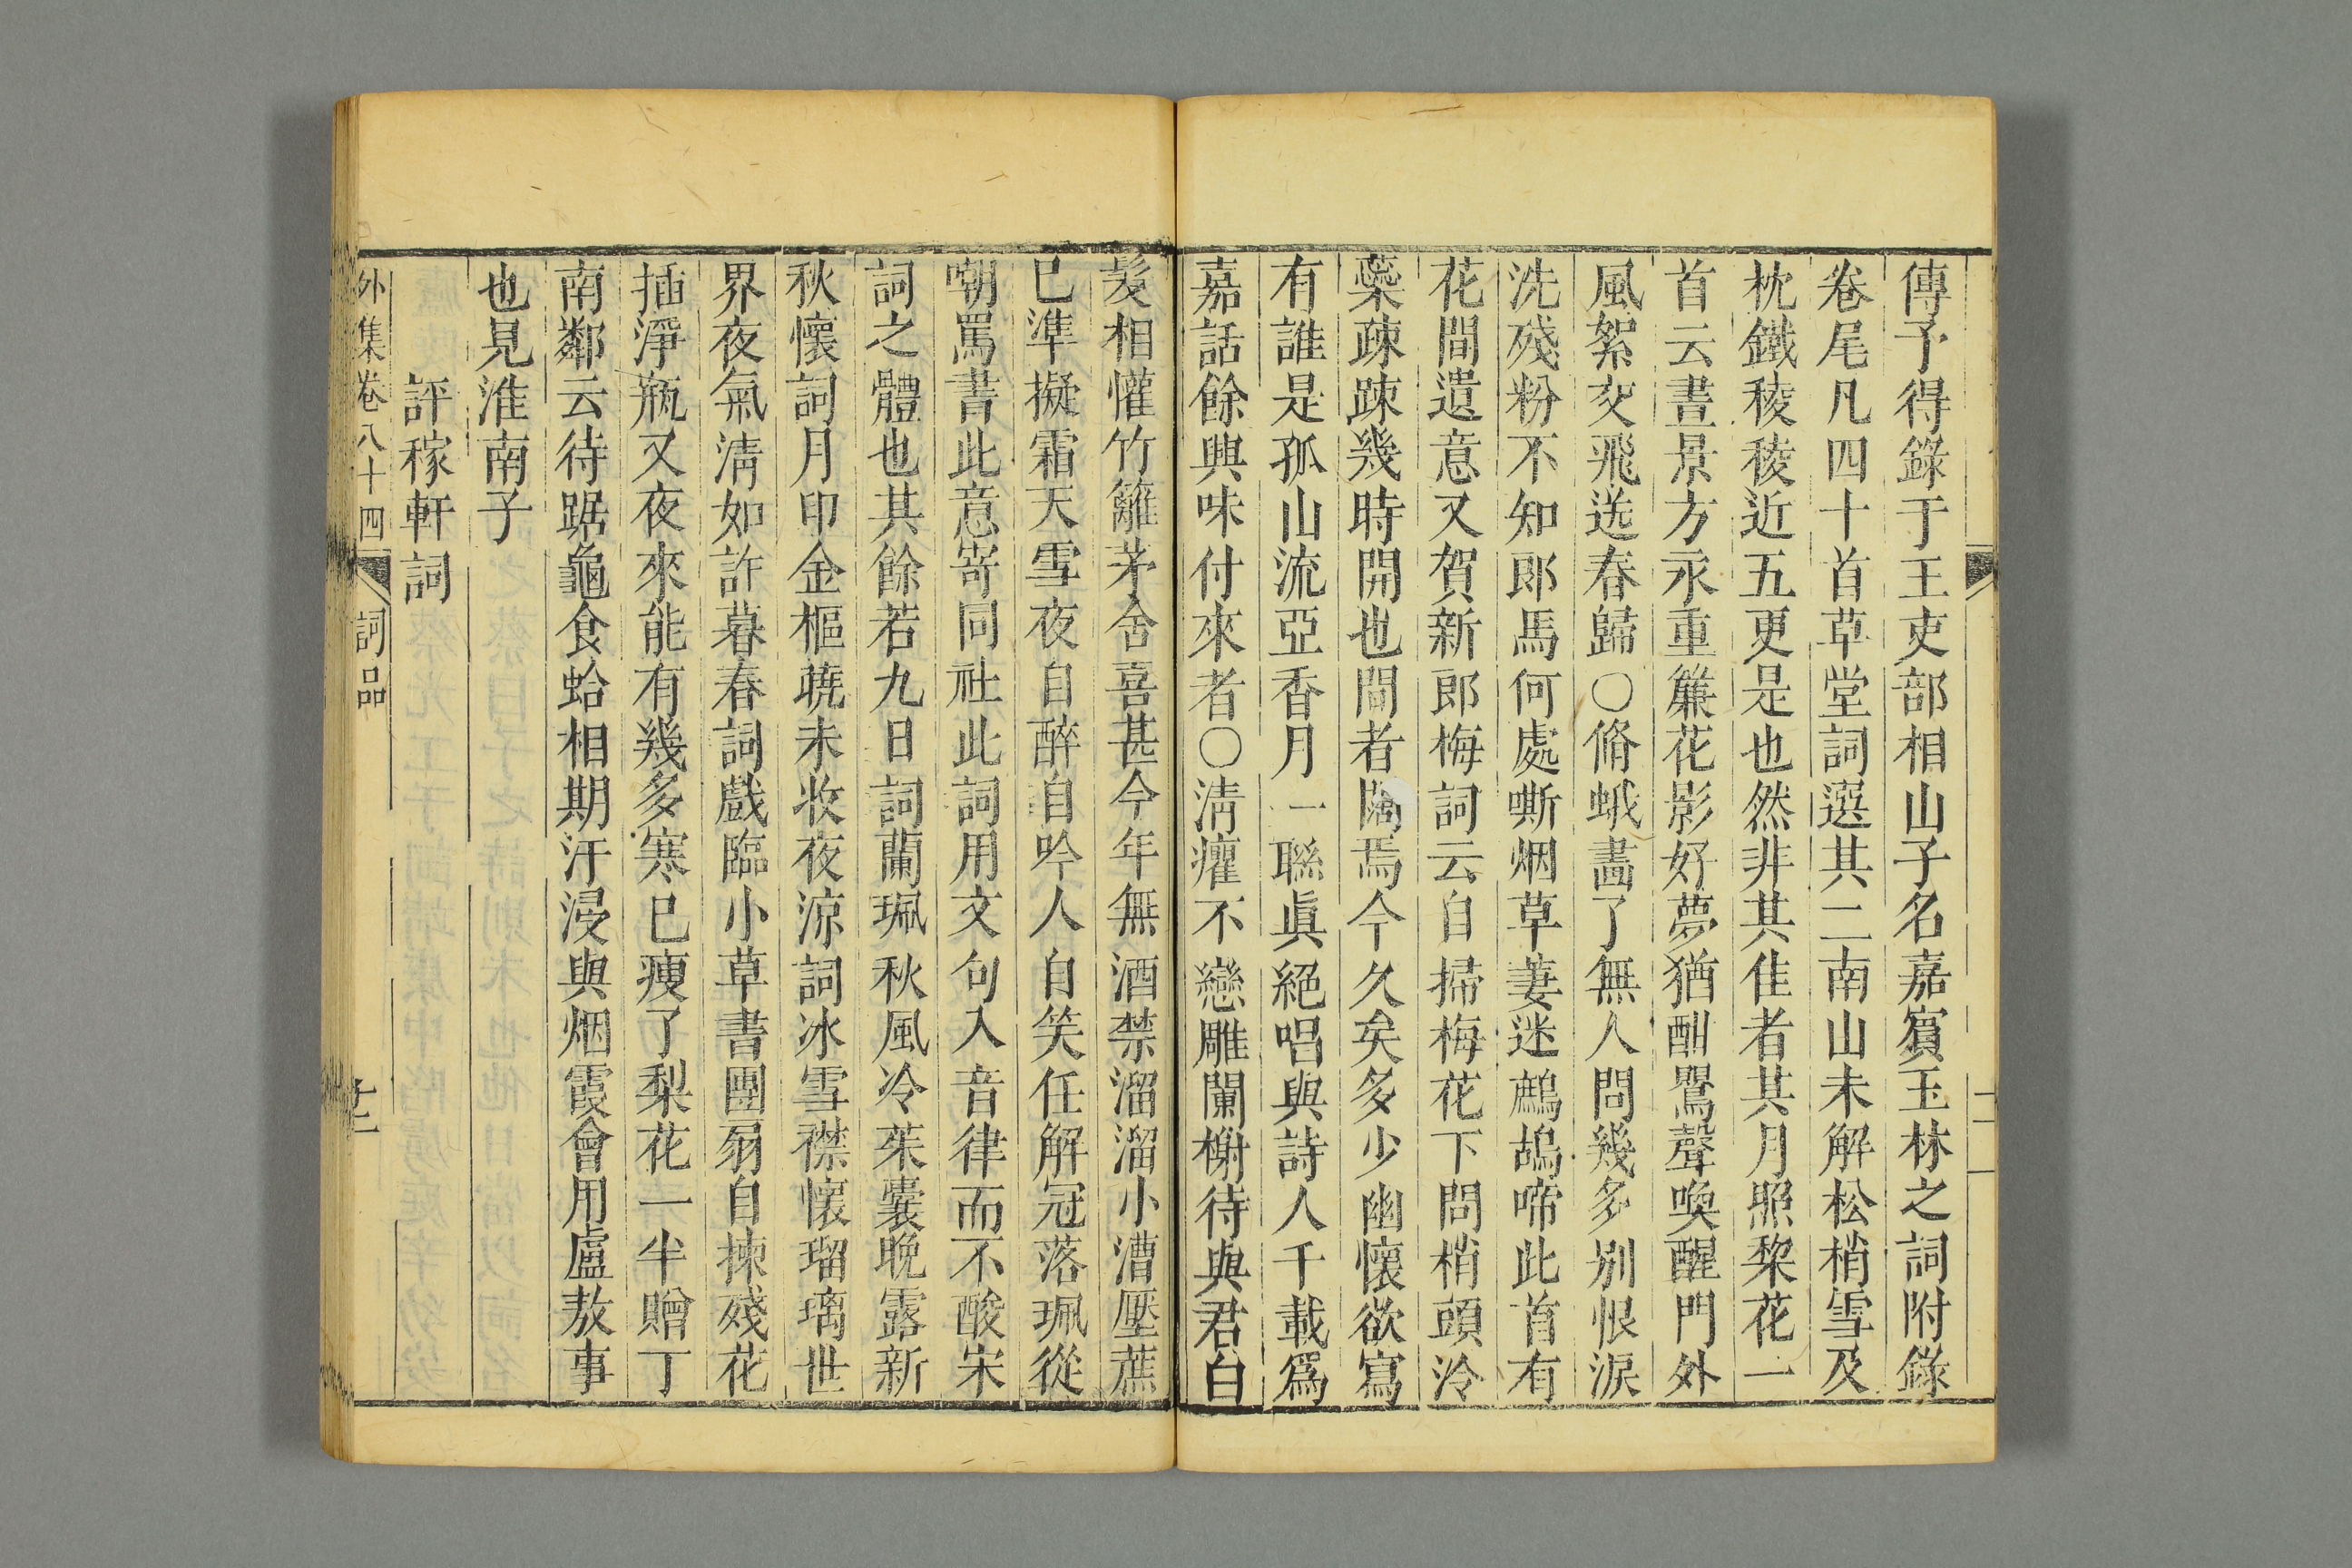 傳予得錄于王吏部相山子名嘉賓玉林之詞附錄
卷尾凡四十首草堂詞選其二南山未解松梢雪及
枕鐵稜稜近五更是也然非其佳者其月照棃花一
首云晝景方永重簾花影好夢猶酣鶯聲喚醒門外
風絮交飛送春歸○脩蛾畵了無人問幾多别恨淚
洗殘粉不知郎馬何處嘶烟草萋迷鷓鴣啼此首有
花間遺意又賀新郎梅詞云自掃梅花下問梢頭冷
蘂疎疎幾時開也間者闊焉今久矣多少幽懷欲寫
有誰是孤山流亞香月一聯眞絕唱與詩人千載爲
嘉話餘興味付來者○淸癯不戀雕闌榭待與君白
髮相懽竹籬茅舍喜甚今年無酒禁溜溜小漕壓蔗
已準擬霜天雪夜自醉自吟人自笑任解冠落珮從
嘲罵書此意寄同社此詞用文句入音律而不酸宋
詞之體也其餘若九日詞蘭珮秋風冷茱囊晚露新
秋懷詞月印金樞曉未收夜涼詞冰雪襟懷瑠璃世
界夜氣淸如許暮春詞戲臨小草書團扇自揀殘花
插淨瓶又夜來能有幾多寒已瘦了梨花一半贈丁
南鄰云待踞龜食蛤相期汗漫與烟霞會用盧敖事
也見淮南子
評稼軒詞
外集卷八十四
詞品
廿二